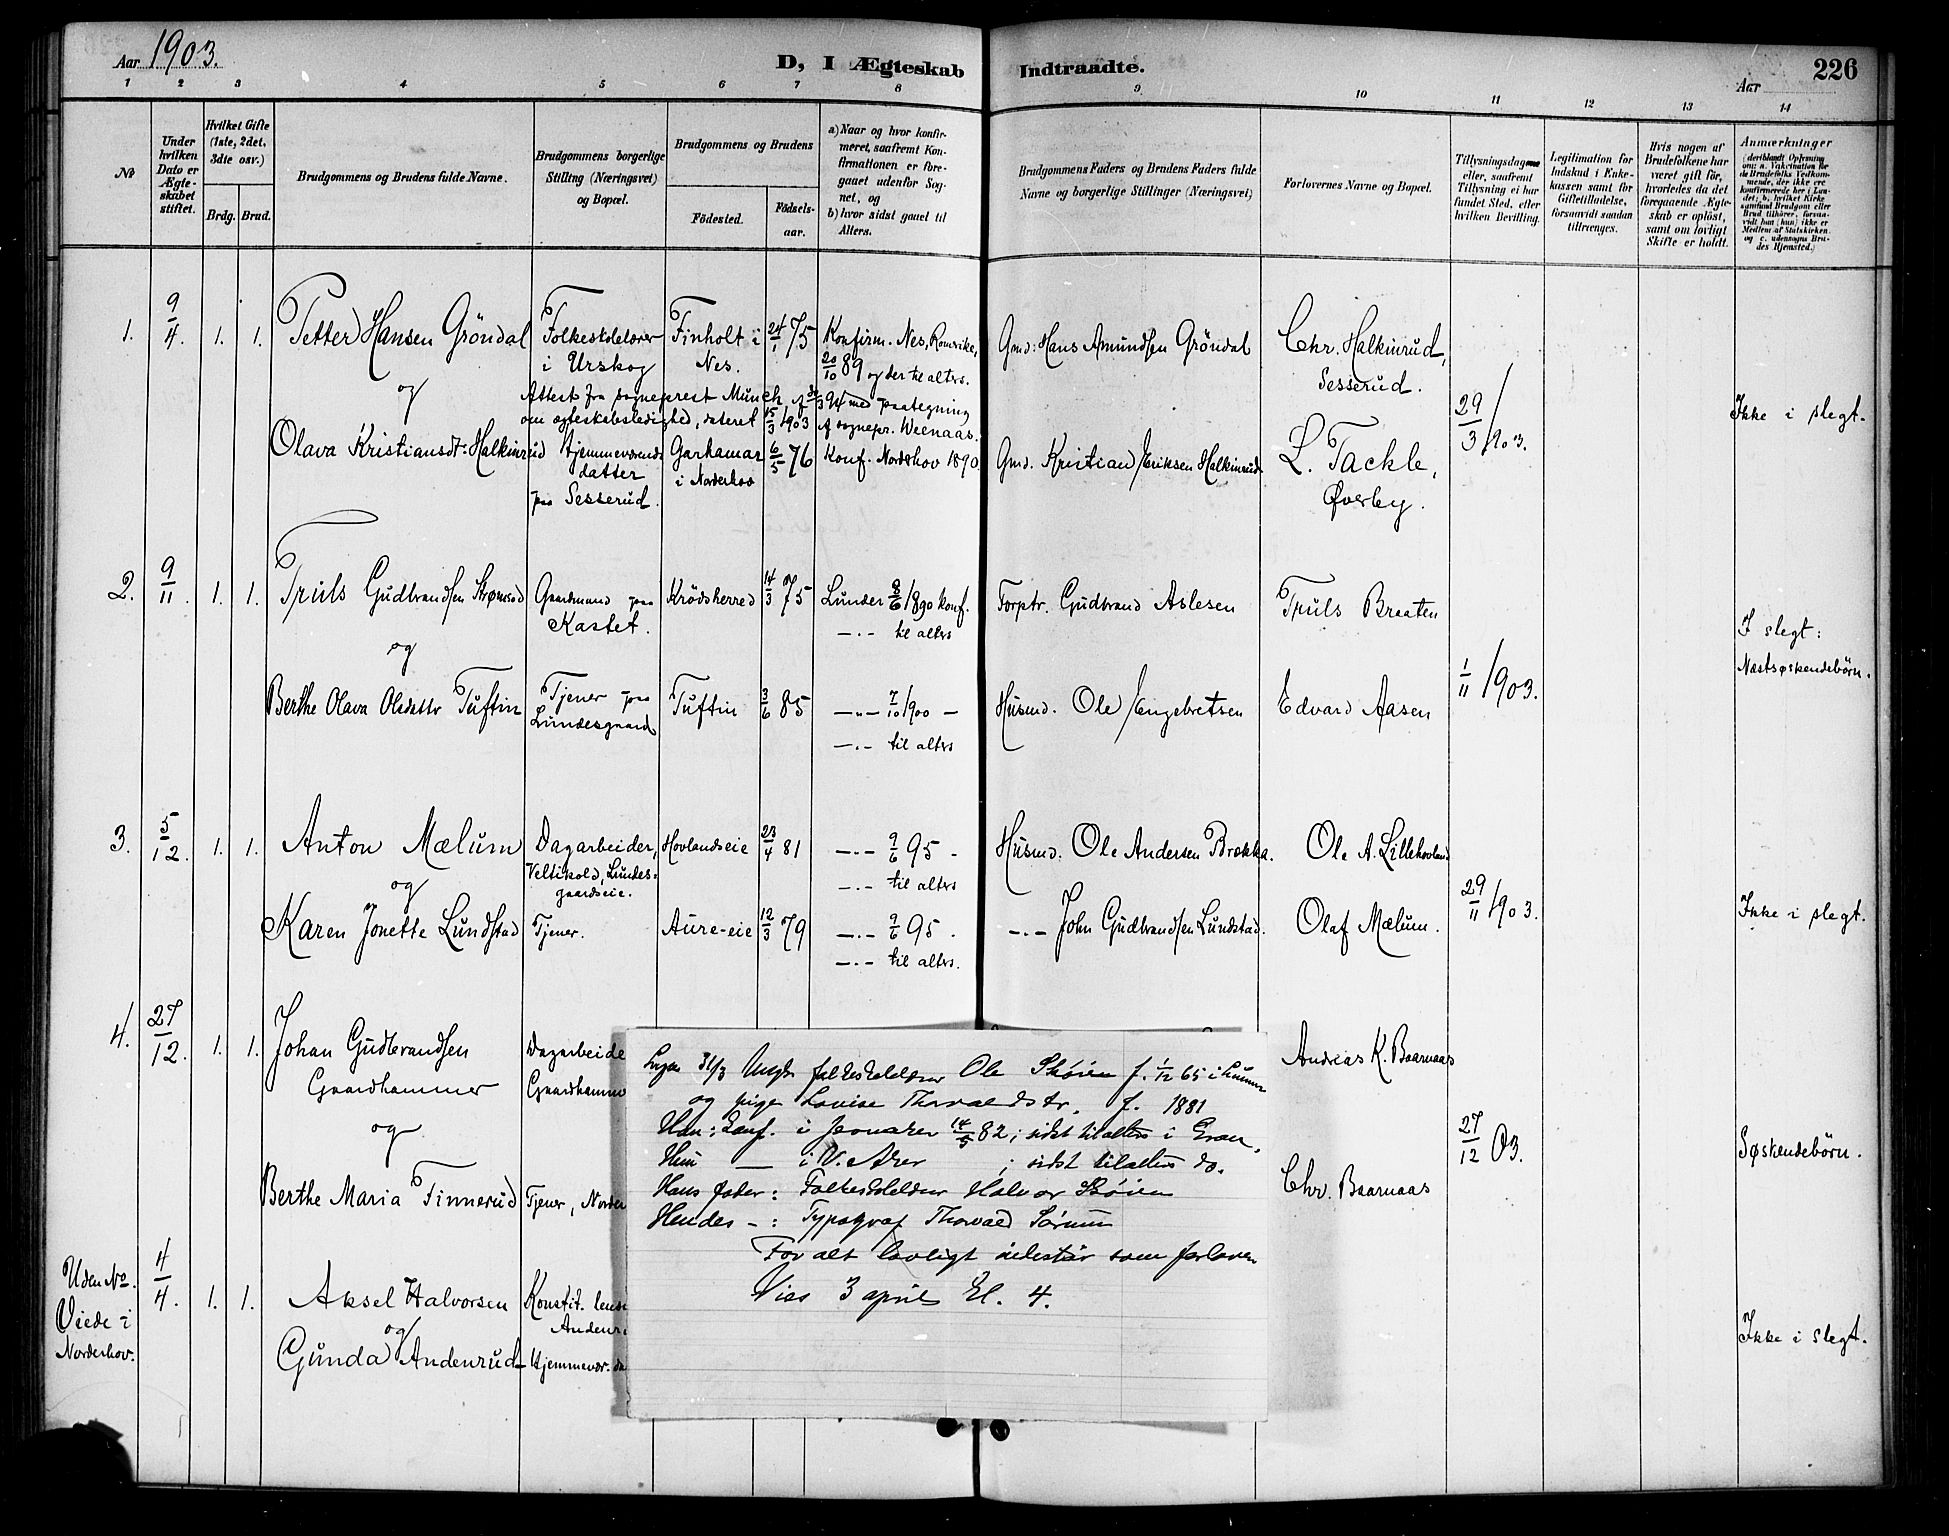 Aar 1903.
D, I Ægteskab Indtraadte.
226
Aar
1 2 3 4 5 6 7 8 9 10 11 12 13 14
No
Under hvilken Dato er Ægteskabet stiftet.
Hvilket Gifte (1ste, 2det, 3die osv.)
Brdg. Brud.
Brudgommens og Brudens fulde Navne.
Brudgommens borgerlige Stilling (Næringsvei) og Bopæl.
Brudgommens og Brudens
Födested.
Födselsaar.
a) Naar og hvor konfirmeret, saafremt Konfirmationen er foregaaet udenfor Sognet, og
b) hvor sidst gaaet til Alters.
Brudgommens Faders og Brudens Faders fulde Navne og borgerlige Stillinger (Næringsvei)
Forlovernes Navne og Bopæl.
Tillysningsdagene eller, saafremt Tillysning ei har fundet Sted, efter hvilken Bevilling.
Legitimation for Indskud i Enkekassen samt for Giftetilladelse, forsaavidt saadan tiltrænges.
Hvis nogen af Brudefolkene har været gift för, hvorledes da det foregaaende Ægteskab er oplöst, samt om lovligt Skifte er holdt.
Anmærkninger
(deriblandt Oplysning om: a. Vakcination for de Brudefolks Vedkommende, der ikke ere konfirmerede her i Landet; b. hvilket Kirkesamfund Brudgom eller Brud tilhörer, forsaavidt han (hun) ikke er Medlem af Statskirken, og c. udensogns Brudes Hjemsted.)
1. 9/4. 1. 1. Petter Hansen Gröndal
Folkeskolelærer i Urskog
Finholt i Nes.
24/1 75
Konfirm. Nes, Romerike, 20/10 89 og der til alters.
Gmd: Hans Amundsen Gröndal
Chr. Halkinrud, Sesserud.
og
Attest fra sogneprest Münch af 30/3 94 med paategning
om ægteskabsledighed, dateret 15/3 1903 af sognepr. Weenaas.
29/3 1903.
Ikke i slegt.
Olava Kristiansdt. Halkinrud
Hjemmeværende datter paa Sesserud.
Garhamar i Norderhov
6/5 76
Konf. Norderhov 1890
Gmd. Kristian Eriksen Halkinrud
L. Tackle, Øverby.
2. 9/11. 1. 1. Truls Gudbrandsen Strømsod
Gaardmand paa Kastet.
Krödsherred
14/3 75
Lunder 8/6 1890 konf.
—.— til alters
Torptr. Gudbrand Aslesen
Truls Braaten
og
I slegt: Næstsøskendebörn.
Berthe Olava Olsdattr Tuftin
Tjener paa Lundesgaard
Tuftin
3/6 85
—.— 7/10 1900 —
—.— til alters
Husmd. Ole Engebretsen
Edvard Aasen
1/11 1903.
3. 5/12. 1. 1. Anton Mælum
Dagarbeider, Veltikold, Lundesgaardseie.
Hovlandseie
23/4 81
—.— 9/6 95 -
—.— til alters
Husmd. Ole Andersen Brekka.
Ole A. Lillehovland
og
29/11 1903.
Ikke i slegt.
Karen Jonette Lundstad
Tjener.
Aure-eie
12/3 79
—.— 9/6 95.
—.— til alters.
—.— John Gudbrandsen Lundstad.
Olaf Mælum.
4. 27/12. 1. 1. Johan Gudbrandsen Gaardhammer
Dagarbeide
Gaardhamme
Andreas K. Baarnaas
og
27/12 03.
Søskendebörn.
Berthe Maria Finnerud
Tjener, Norder
Chr. Baarnaas
Uden No. Viede i Norderhov.
4/4. 1. 1. Aksel Halvorsen
Konstit. lens
Anden
og
Gunda Andenrud
Hjemmevær. da
Ikke i slegt.
31/3 Ungk. folkeskolelærer Ole Skøien f. 1/12 65 i Lunner
og pige Lovise Thorvaldsdtr. f. 1881
Han: konf. i Jevnaker 14/5 82; sidst tilalters i Gran.
Hun — i V. Aker ; sidst tilalters do.
Hans fader: Folkeskolelærer Halvor Skøien
Hendes - : Typograf Thorvald Sørum
For alt lovligt indestår som forlover
Vies 3 april kl. 4.